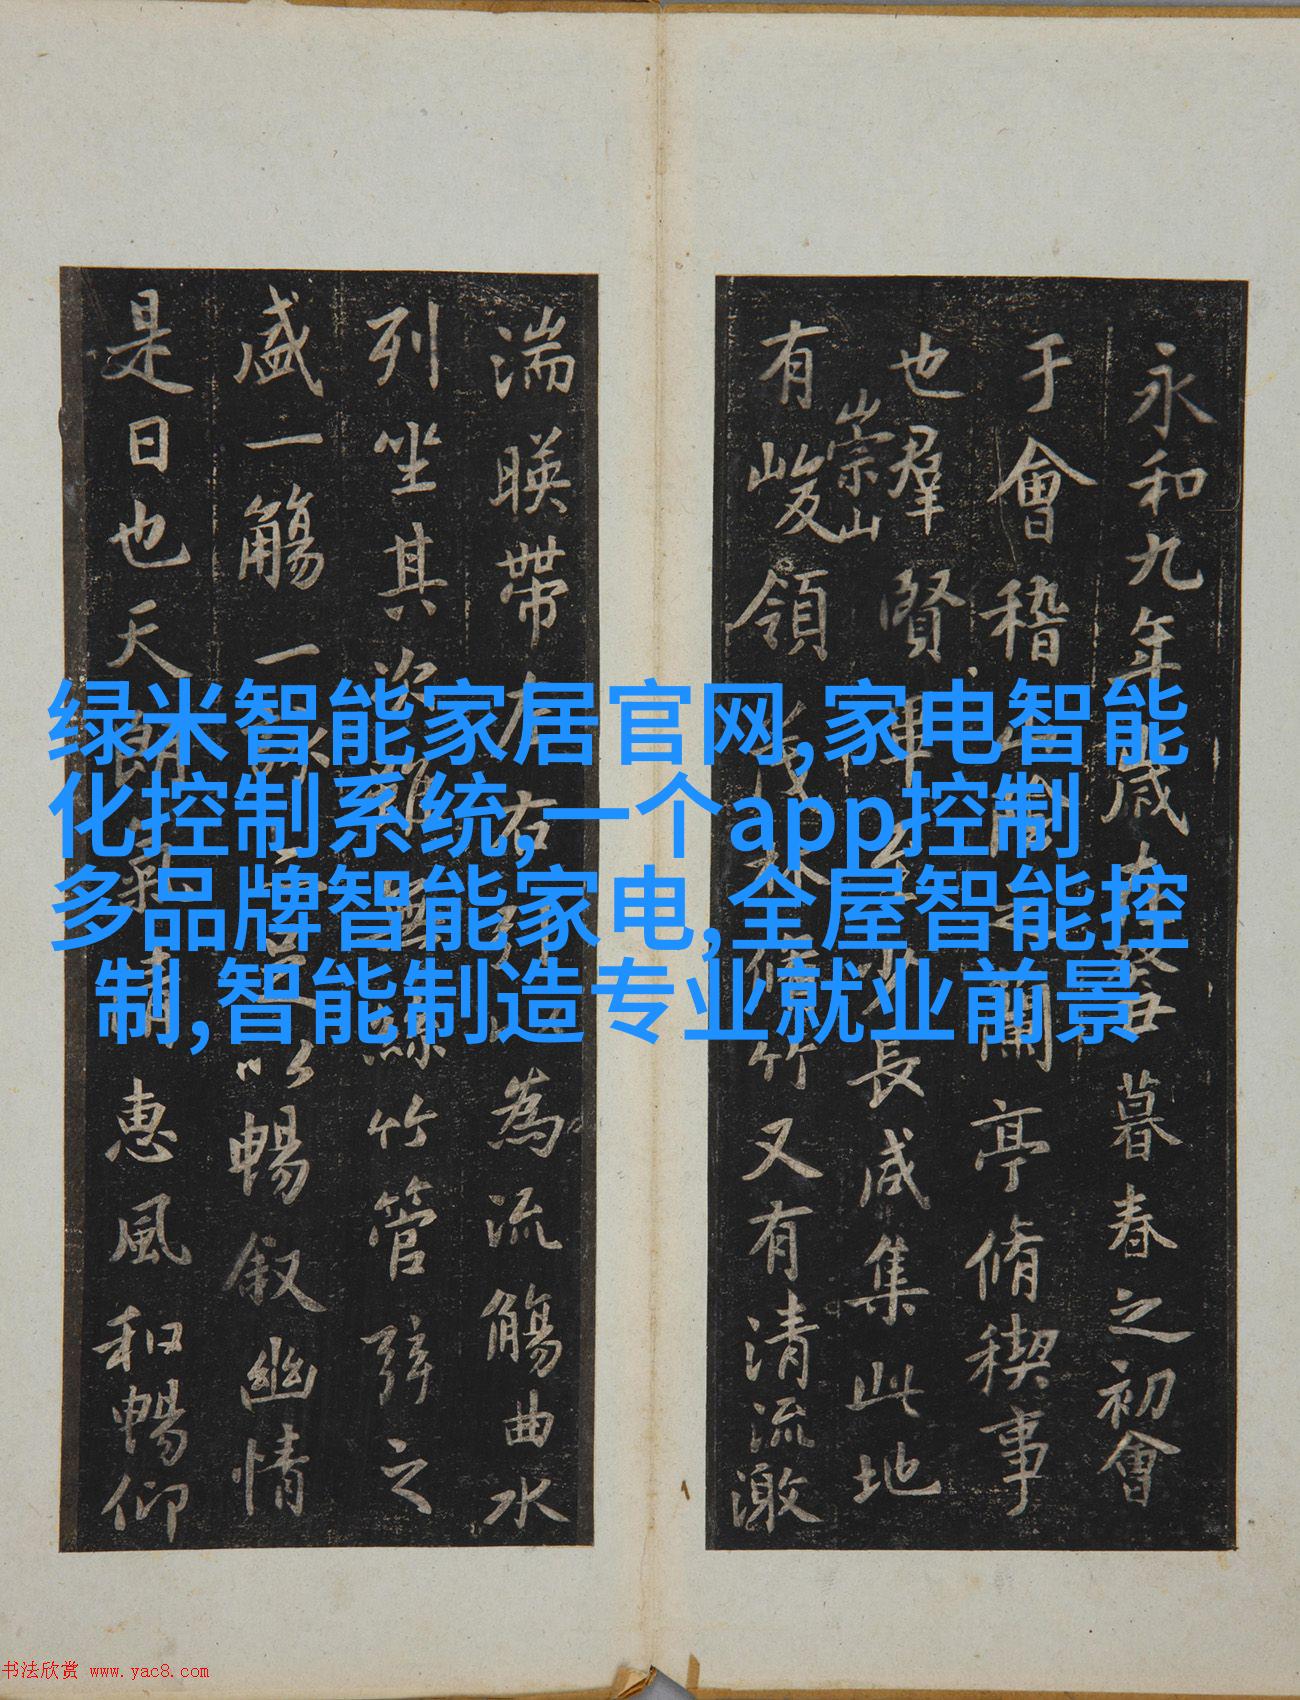 永和九年歲在癸丑暮春之初會
于會稽山陰之蘭亭脩禊事
也羣賢畢至少長咸集此地
有崇山峻領茂林脩竹又有清流激
湍暎帶左右引以為流觴曲水
列坐其次雖無絲竹管弦之
盛一觴一詠亦足以暢叙幽情
是日也天朗氣清惠風和暢仰
绿米智能家居官网,家电智能
化控制系统,一个app控制
多品牌智能家电,全屋智能控
制,智能制造专业就业前景
书法欣赏 www.yac8.com